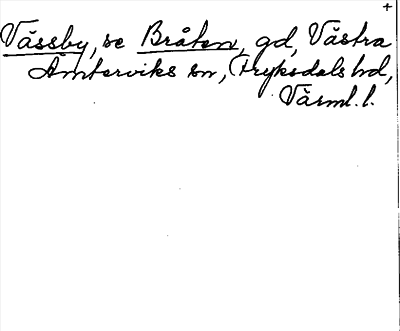 +
Vässby, se Bråten, gd, Västra
Ämterviks sn, Fryksdals hd,
Värml. l.